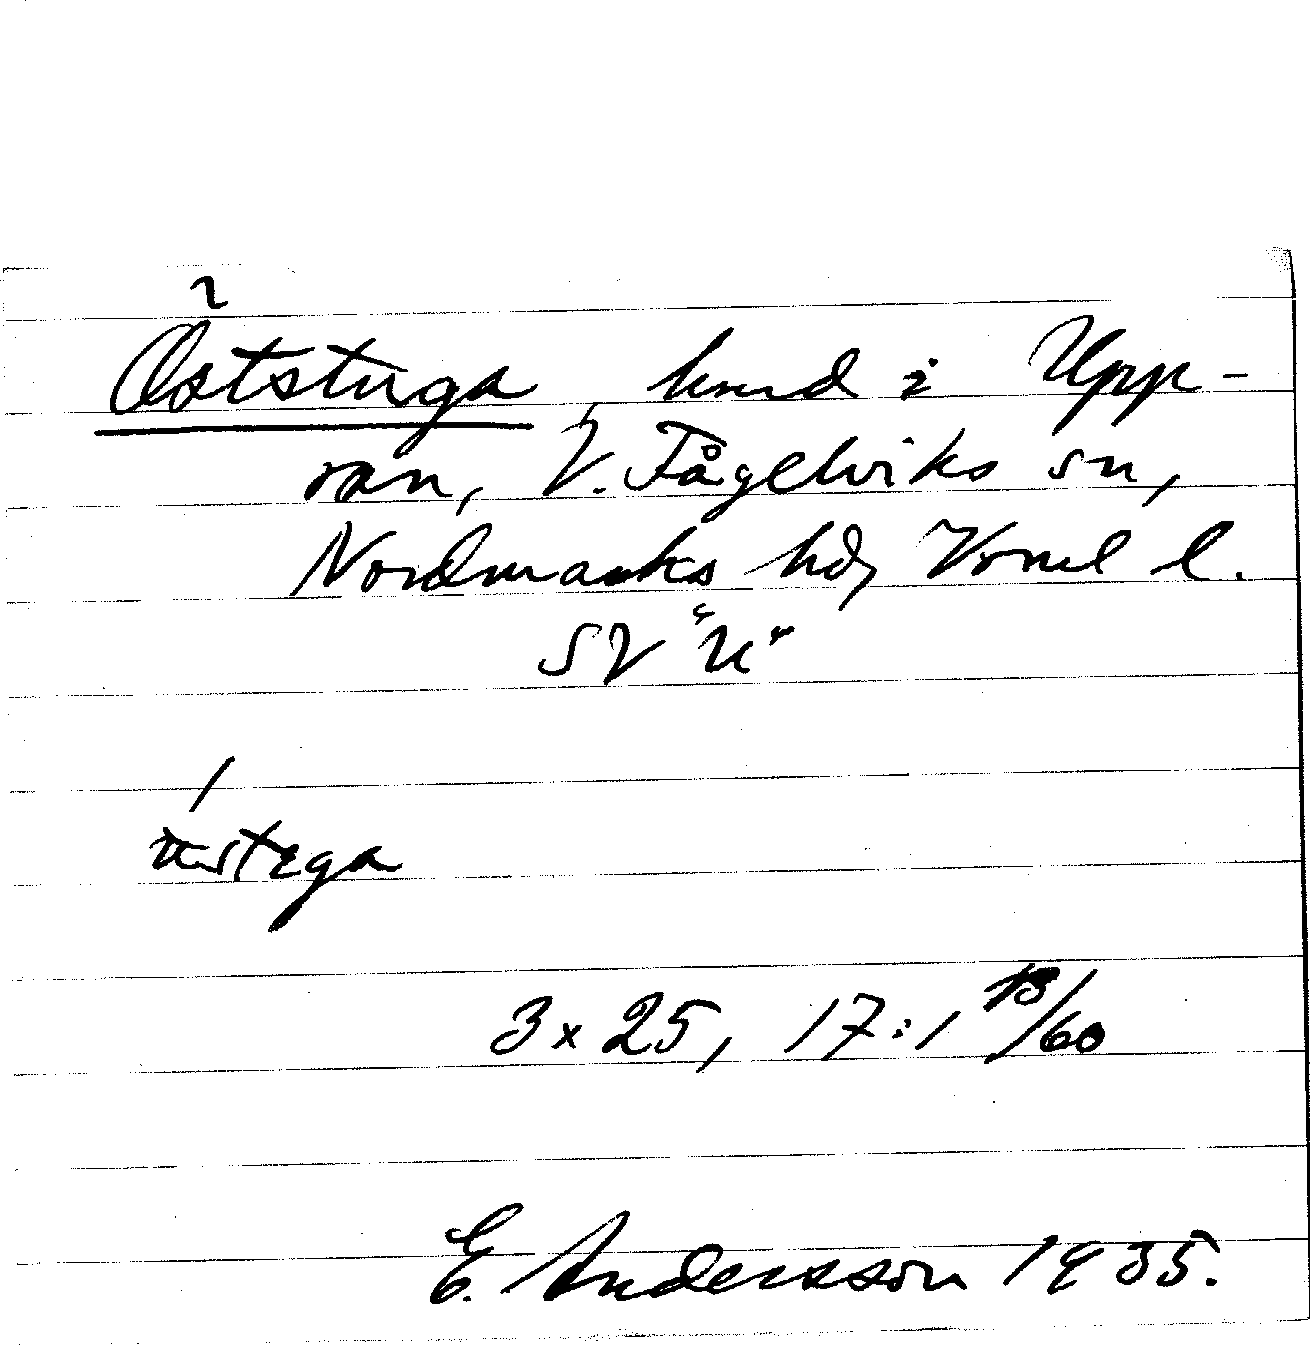 Öststuga, hmd i Upp-
ran, V. Fågelviks sn,
Nordmarks hd, Vrml l.
SV "u"
3 x 25, 17:1 13/60
E. Andersson 1935.